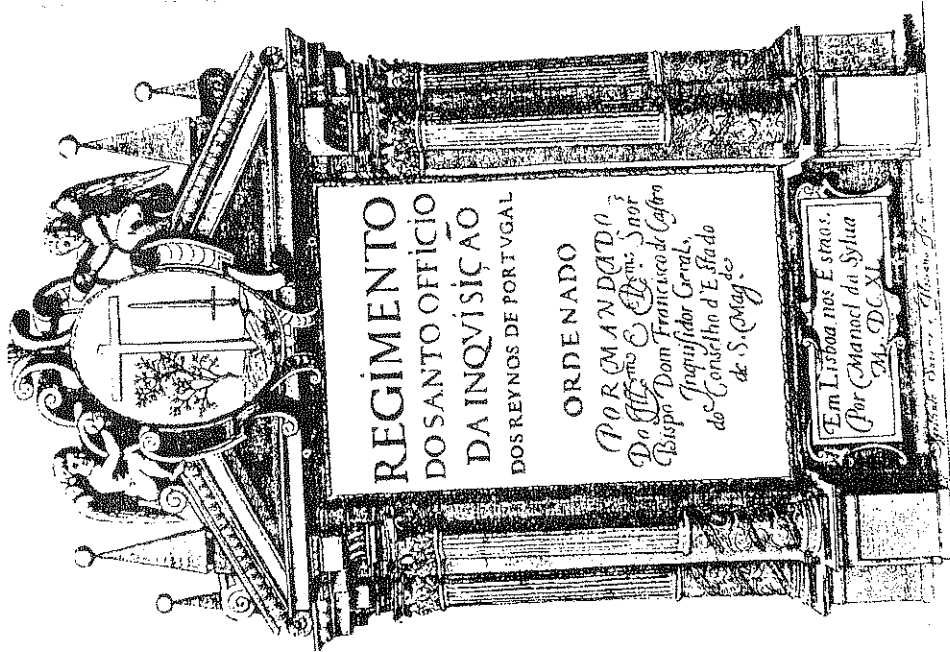 REGIMENTO
DO SANTO OFFICIO
DA INQVISIÇÃO
DOS REYNOS DE PORTVGAL
ORDENADO
POR MANDADO
Do Illmo. & Rmo. Snor
Bispo Dom Francisco de Castro
Inquisidor Geral,
do Conselho d'Estado
de S. Magde.
Em Lisboa nos Estaos.
Por Manoel da Sylua
M. DC. XL